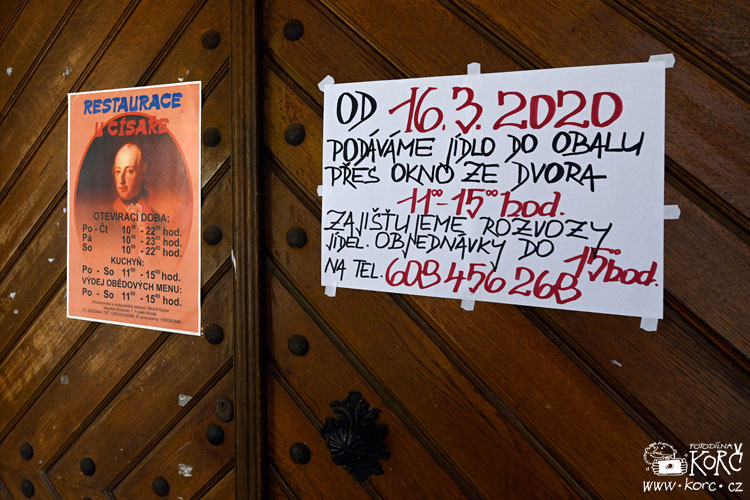 RESTAURACE
U CÍSAŘE
OTEVÍRACÍ DOBA:
Po - Čt 10⁰⁰ - 22⁰⁰ hod.
Pá 10⁰⁰ - 23⁰⁰ hod.
So 10⁰⁰ - 22⁰⁰ hod.
KUCHYŇ:
Po - So 11⁰⁰ - 15⁰⁰ hod.
VÝDEJ OBĚDOVÝCH MENU:
Po - So 11⁰⁰ - 15⁰⁰ hod.
OD 16.3.2020
PODÁVÁME JÍDLO DO OBALU
PŘES OKNO ZE DVORA
11⁰⁰-15⁰⁰ hod.
ZAJIŠŤUJEME ROZVOZY
JÍDEL. OBJEDNÁVKY DO 15⁰⁰ hod.
NA TEL. 608 456 268
FOTODÍLNA
KORČ
www.korc.cz